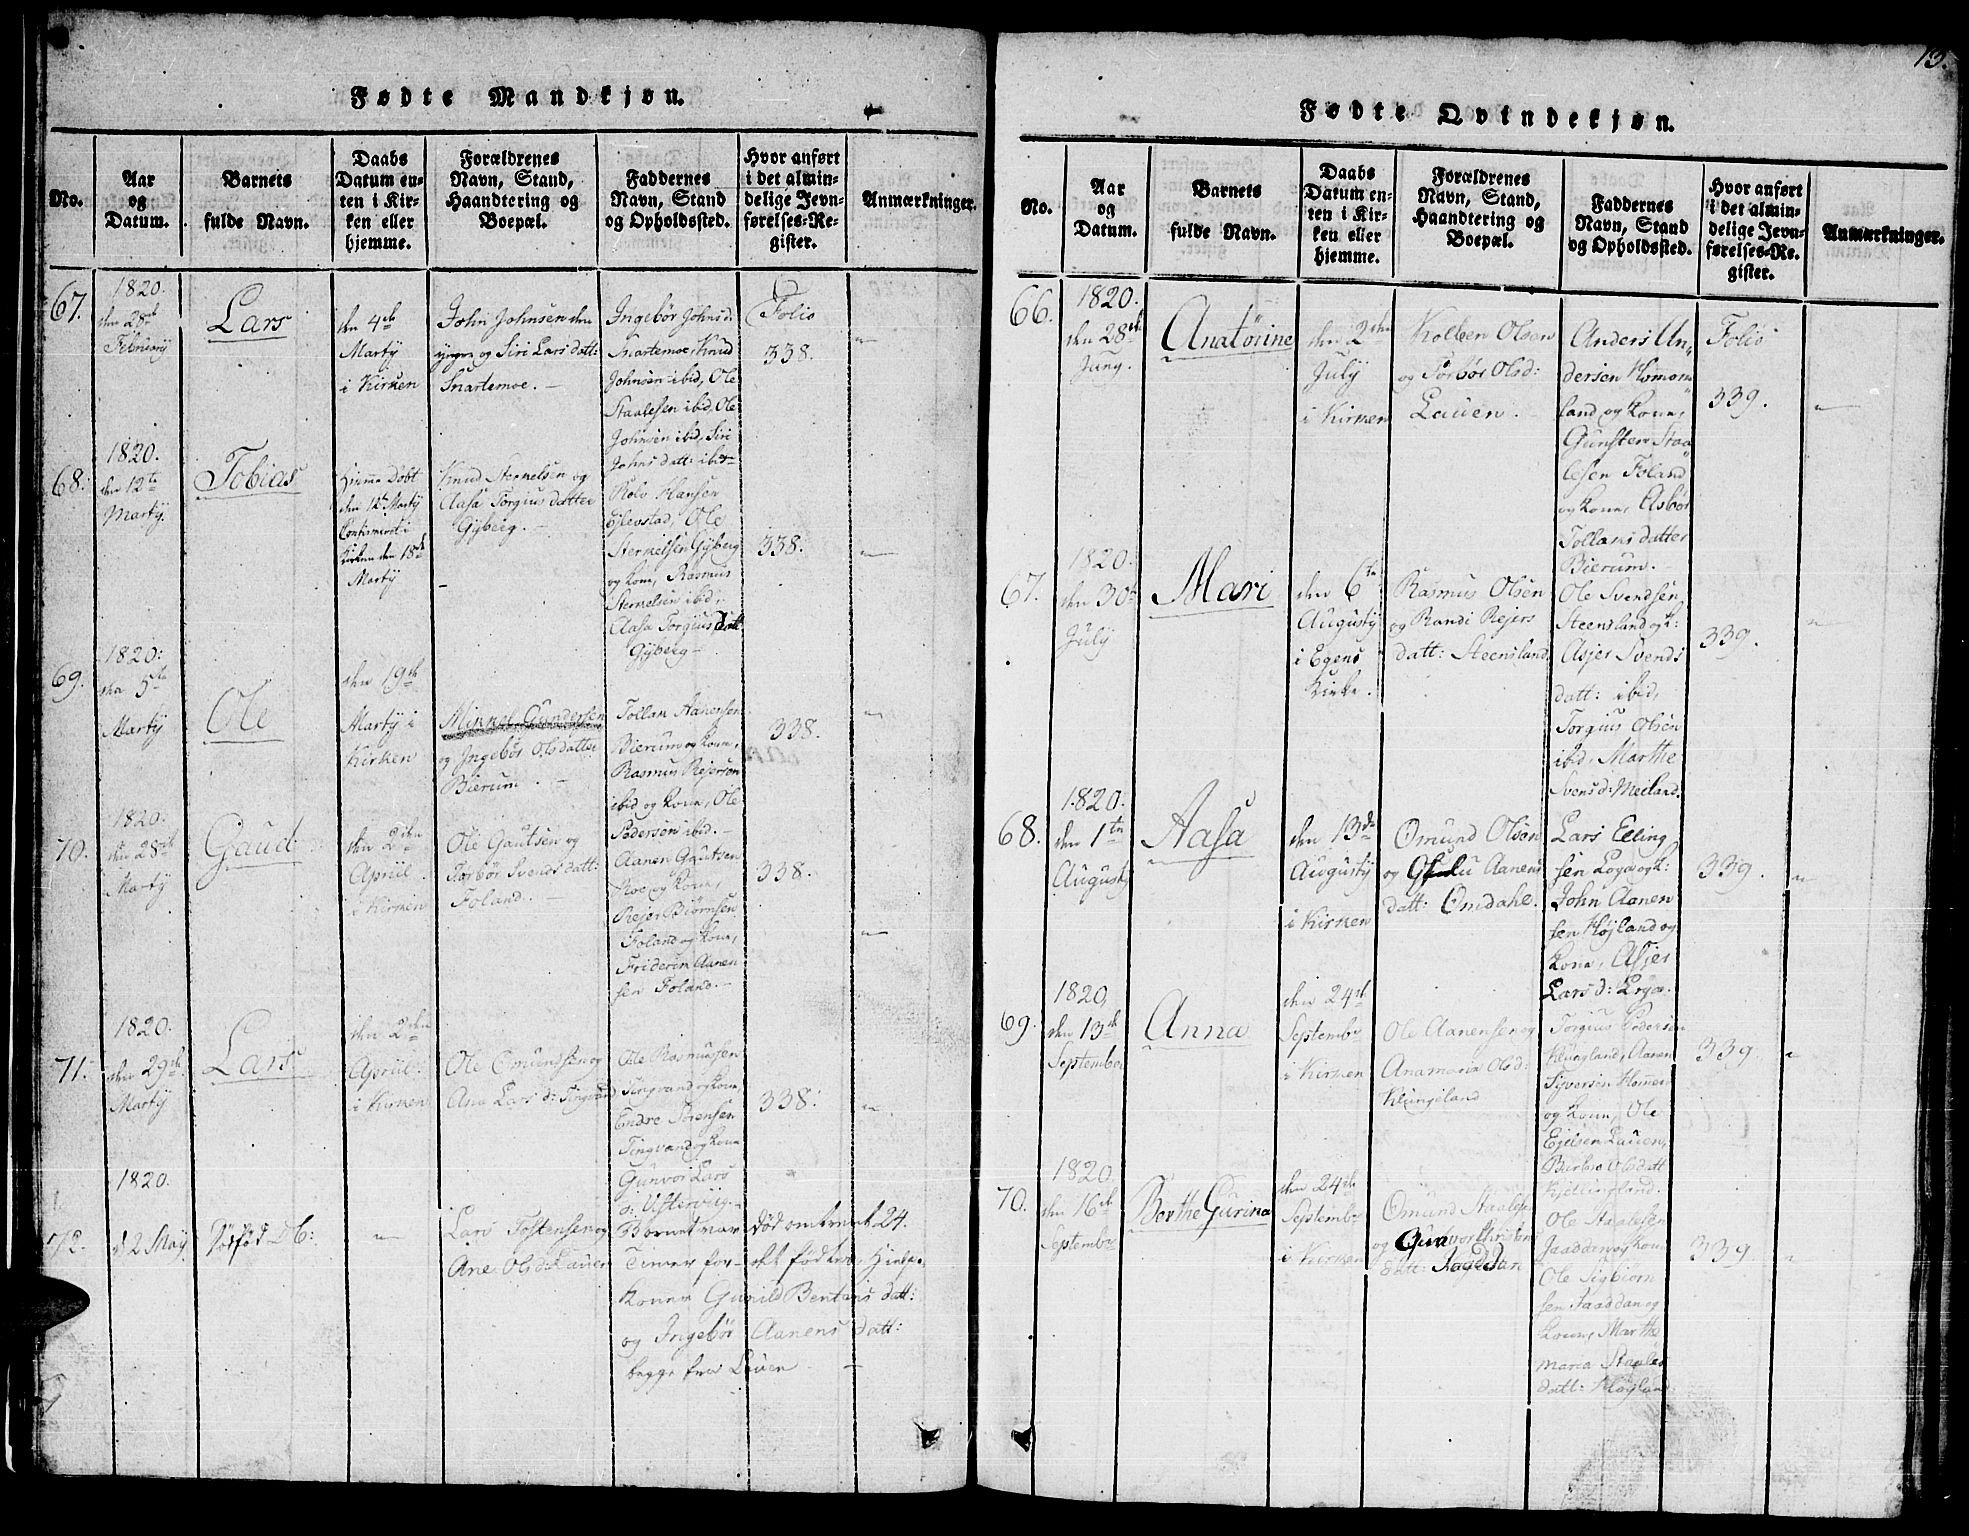 Fødte Mandkjøn.
No.
Aar
og
Datum.
Barnets
fulde Navn.
Daabs
Datum en-
ten i Kir-
ken eller
hjemme.
Forældrenes
Navn, Stand,
Haandtering og
Boepæl.
Faddernes
Navn, Stand
og Opholdssted.
Hvor anført
i det almin-
delige Jevn-
førelses-Re-
gister.
Anmærkninger.
67.
1820.
den 28de
February
Lars
den 4de
Martÿ
i Kirken
John Johnsen den
yngre og Siri Larsdatt:
Snartemoe. –
Ingebør Johnsd:
Snartemoe, Knud
Johnsen ibid, Ole
Staalesen ibid, Ole
Johnsen ibid, Siri
Johnsdatt: ibid
Folio
338.
68.
1820.
den 12te
Martÿ.
Tobias
Hiemme Døbt
den 12te Martÿ
Confirmeret i
Kirken den 18de
Martÿ
Knud Sternelsen og
Aasa Torgiusdatter
Gÿberg. –
Rolv Hansen
Øÿlevstad, Ole
Sternelsen Gÿberg
og Kone, Rasmus
Sternelsen ibid,
Aasa Torgiusdatt
Gÿberg –
338.
69.
1820.
den 5te
Martÿ
Ole
den 19de
Martÿ i
Kirken
Minne Gundersen
og Ingebør Olsdatter
Bierum. –
Tollan Aanensen
Bierum og Kone,
Rasmus Rejersen
ibid og Kone, Ole
Pedersen ibid. –
338.
70.
1820.
den 28de
Martÿ
Gaud
den 2den
Apriil.
i Kirken
Ole Gautsen og
Torbør Svendsdatt:
Foland. –
Aanen Gautsen
Roe og Kone,
Rejer Biørnsen
Foland og Kone,
Friderik Aanen
sen Foland. –
338.
71.
1820.
den 29de
Martÿ
Lars
den 2den
Apriil.
i Kirken
Ole Omundsen og
Ane Larsd: Tingvand
Ole Rasmussen
Tingvand og Kone,
Endre Sørensen
Tingvand og Kone
Gunvor Lars
d:
338.
72.
1820.
d 2 May
Dødfød DB:
Lars Tostensen og
Ane Olsd: Lauen
Barnet var død omtrent 24.
Timer før det fødtes. Hielpe
Koner Gunild Bentons datt:
og Ingebør Aanens datt:
begge fra Lauen –
13.
Fødte Qvindekjøn.
No.
Aar
og
Datum.
Barnets
fulde Navn.
Daabs
Datum en-
ten i Kir-
ken eller
hjemme.
Forældrenes
Navn, Stand,
Haandtering og
Boepæl.
Faddernes
Navn, Stand
og Opholdssted.
Hvor anført
i det almin-
delige Jevn-
førelses-Re-
gister.
Anmærkninger.
66.
1820.
den 28de
Junÿ.
Anatørine
den 2den
Julÿ
i Kirken
Kolben Olsen
og Torbør Olsd:
Lauen.
Anders An-
dersen Homom-
land og Kone,
Gunsten Staa
lesen Foland
og Kone, Asbør
Tollansdatter
Bierum. –
Folio
339.
67.
1820.
den 30te
Julÿ
Mari
den 6te
Augustÿ
i Egens
Kirke.
Rasmus Olsen
og Randi Rejers
datt: Steensland.
Ole Svendsen
Steensland og K:
Asjer Svends
datt: ibid,
Torgius Olsen
ibid, Marthe
Svensd: Meiland.
339.
68.
1820.
den 1te
Augustÿ
Aasa
den 13de
Augustÿ
i Kirken
Omund Olsen
og Aanens
datt: Omdahl.
Lars Elling
sen Loga og K:
John Aanen
sen Høÿland og
Kone, Asjer
Larsd: Loga.
339.
69.
1820.
den 13de
September
Anna
den 24de
Septembr
i Kirken
Ole Aanensen og
Anamaria Olsd:
Klungeland
Torgius Pedersen
Klungland, Aanen
Sÿversen Hommen
og Kone, Ole
Ejelsen Lauen,
Barbro Olsdatt
Kjellingland.
339
70.
1820.
den 16de
Septembr
Berthe Gurina
den 24de
Septembr
i Kirken
Omund Staalesen
og Gunvor Christens
datt: Jaaddan
Ole Staalesen
Jaaddan og Kone
Ole Sigbiørn
sen Jaaddan og
Kone, Marthe
maria Staales
datt: Høÿland
339